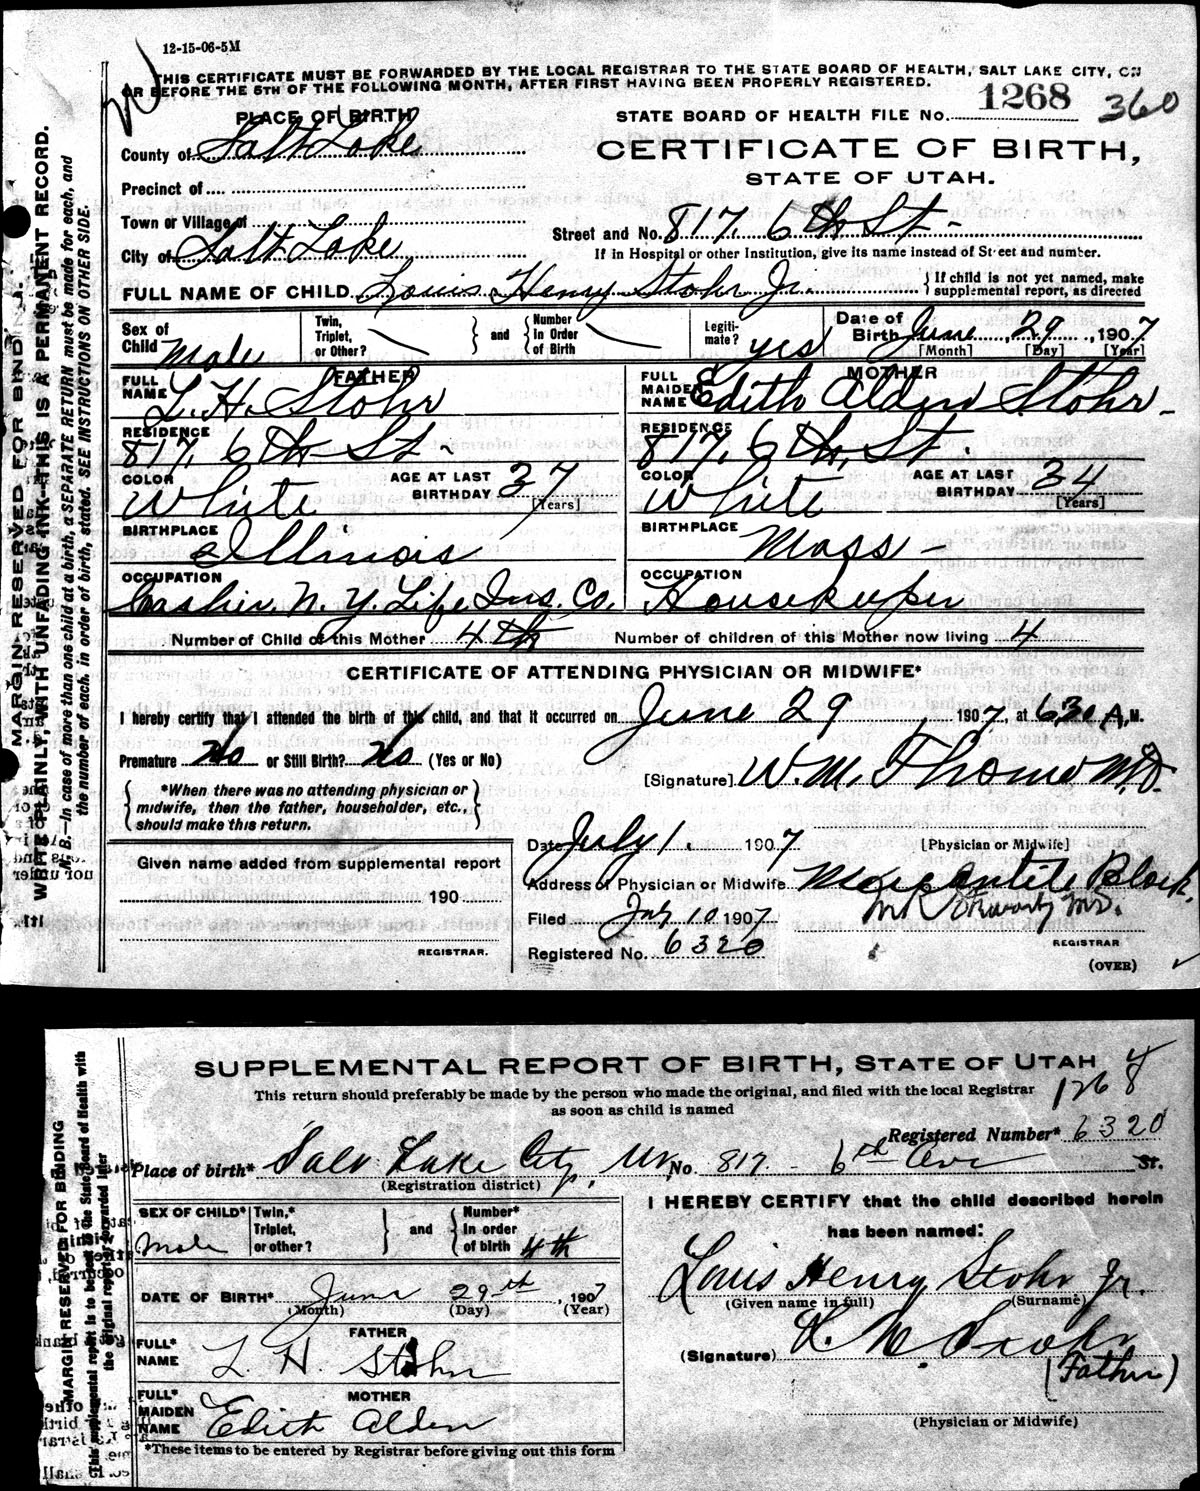 12-15-06-5M
THIS CERTIFICATE MUST BE FORWARDED BY THE LOCAL REGISTRAR TO THE STATE BOARD OF HEALTH, SALT LAKE CITY, ON
OR BEFORE THE 5TH OF THE FOLLOWING MONTH, AFTER FIRST HAVING BEEN PROPERLY REGISTERED.
PLACE OF BIRTH
STATE BOARD OF HEALTH FILE NO. 1268 360
County of Salt Lake
CERTIFICATE OF BIRTH,
STATE OF UTAH.
Precinct of
Town or Village of
Street and No. 817, 6th St-
City of Salt Lake
If in Hospital or other Institution, give its name instead of Street and number.
FULL NAME OF CHILD Louis Henry Stohr Jr. {If child is not yet named, make
supplemental report, as directed
Sex of Child Male
Twin, Triplet, or Other?
and
Number In Order of Birth
Legiti-mate? yes
Date of Birth June 29, 1907
[Month] [Day] [Year]
FATHER
FULL NAME L. H. Stohr
MOTHER
FULL MAIDEN NAME Edith Alden Stohr-
RESIDENCE 817, 6th St-
RESIDENCE 817, 6th, St.
COLOR White
AGE AT LAST BIRTHDAY 37 [Years]
COLOR White
AGE AT LAST BIRTHDAY 34 [Years]
BIRTHPLACE Illinois
BIRTHPLACE Mass-
OCCUPATION Cashier, N. Y. Life Ins. Co.
OCCUPATION Housekeeper
Number of Child of this Mother 4th
Number of children of this Mother now living 4
CERTIFICATE OF ATTENDING PHYSICIAN OR MIDWIFE*
I hereby certify that I attended the birth of this child, and that it occurred on June 29, 1907, at 6 30 A. M.
Premature No or Still Birth? No (Yes or No)
[Signature] W. M. M.D.
{*When there was no attending physician or
midwife, then the father, householder, etc.,
should make this return.}
Date July 1. 1907
[Physician or Midwife]
Given name added from supplemental report
190
REGISTRAR.
Address of Physician or Midwife Mercantile Block.
Filed July 10 1907
M.D.
Registered No. 6320
REGISTRAR
(OVER)
MARGIN RESERVED FOR BINDING.
WRITE PLAINLY, WITH UNFADING INK—THIS IS A PERMANENT RECORD.
N. B.—In case of more than one child at a birth, a SEPARATE RETURN must be made for each, and
the number of each, in order of birth, stated. SEE INSTRUCTIONS ON OTHER SIDE.
SUPPLEMENTAL REPORT OF BIRTH, STATE OF UTAH
This return should preferably be made by the person who made the original, and filed with the local Registrar
as soon as child is named
1268
Registered Number* 6320
Place of birth* Salt Lake City, Ut, No. 817 - 6th Ave St.
(Registration district)
SEX OF CHILD* Male
Twin,* Triplet, or other?
and
Number* In order of birth 4th
I HEREBY CERTIFY that the child described herein
has been named:
DATE OF BIRTH* June 29th, 1907
(Month) (Day) (Year)
Louis Henry Stohr Jr.
(Given name in full) (Surname)
FATHER
FULL* NAME L. H. Stohr
(Signature) L. H. Stohr
(Father)
MOTHER
FULL* MAIDEN NAME Edith Alden
(Physician or Midwife)
*These items to be entered by Registrar before giving out this form
MARGIN RESERVED FOR BINDING
This supplemental report is to be sent to the State Board of Health with
the original report or forwarded later